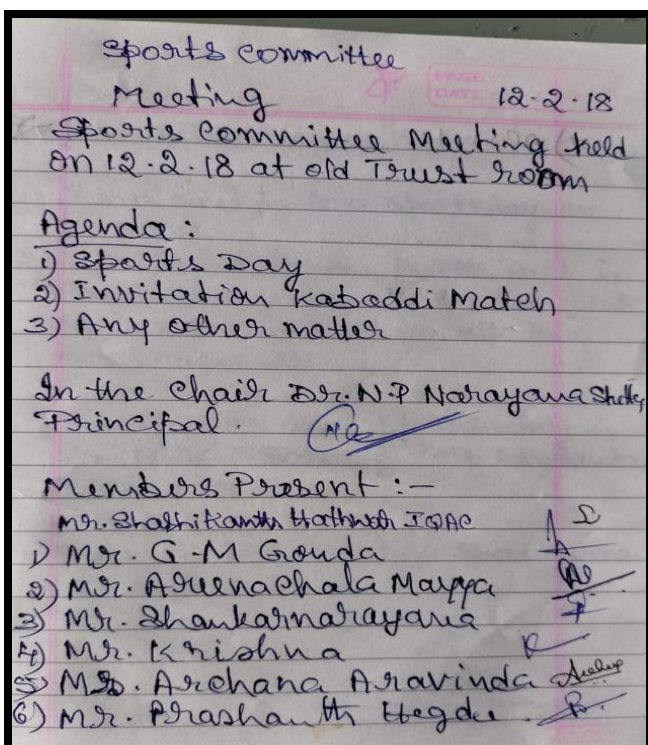 Sports Committee
Meeting 12.2.18
Sports Committee Meeting held
on 12.2.18 at old Trust room
Agenda :
1) Sports Day
2) Invitation Kabaddi Match
3) Any other matter
In the Chair Dr. N.P Narayana Shetty
Principal.
Members Present :-
Mr. Shashikanth Hathwar IQAC
1) Mr. G.M Gonda
2) Mr. Arunachala Mayya
3) Mr. Shankarnarayana
4) Mr. Krishna
5) Mrs. Archana Aravinda
6) Mr. Prashanth Hegde